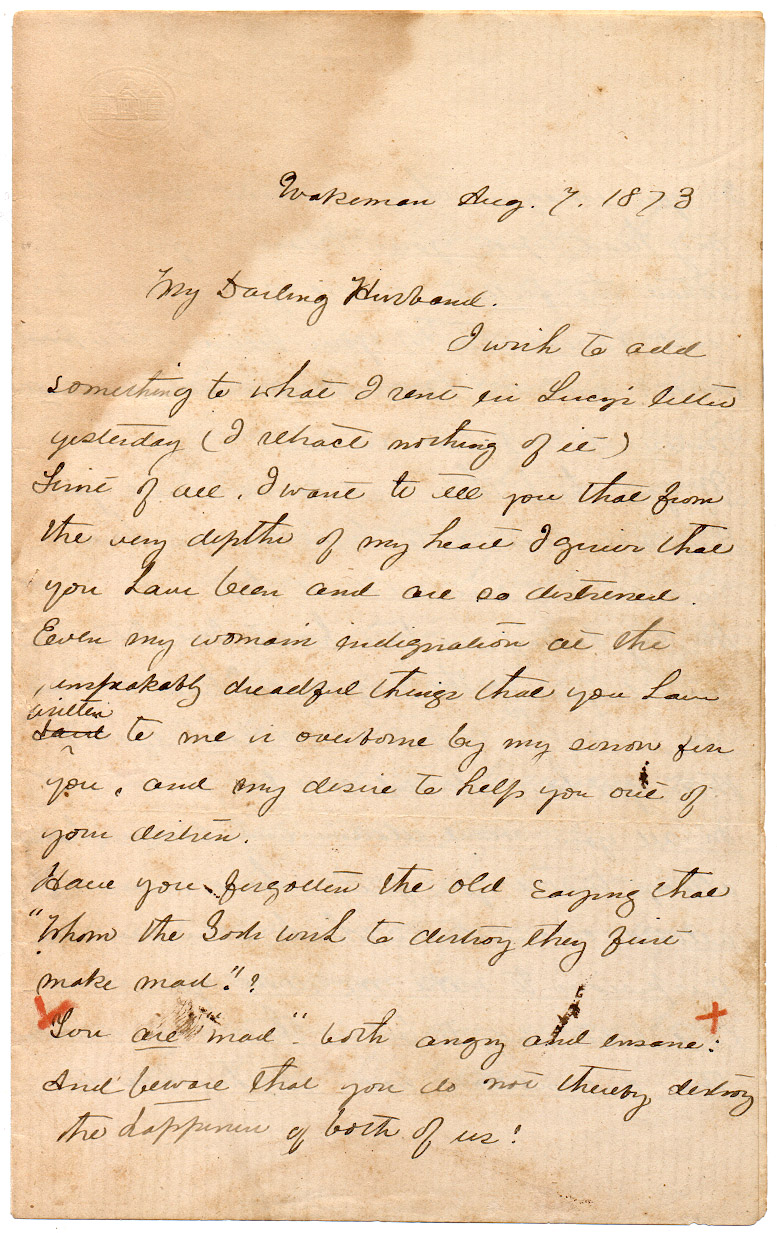 Wakeman Aug. 7. 1873
My Darling Husband.
I wish to add
something to what I sent in Lucy's letter
yesterday (I retract nothing of it)
First of all, I want to tell you that from
the very depths of my heart I grieve that
you have been and are so distressed.
Even my womans indignation at the
unspeakably dreadful things that you have
written
said to me is overborne by my sorrow for
you, and my desire to help you out of
your distress.
Have you forgotten the old saying that
"Whom the Gods wish to destroy they first
make mad."?
You are "mad" - both angry and insane:
And beware that you do not thereby destroy
the happiness of both of us!